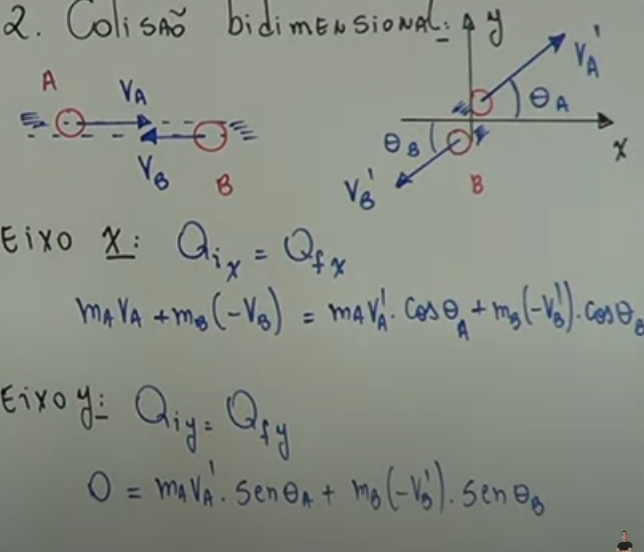 2. Colisão bidimensional:
y
A
V_A
V_B
B
V_A'
θ_A
x
θ_B
V_B'
B
Eixo x: Q_ix = Q_fx
m_A V_A + m_B (-V_B) = m_A V_A' . cos θ_A + m_B (-V_B') . cos θ_B
Eixo y: Q_iy = Q_fy
0 = m_A V_A' . sen θ_A + m_B (-V_B') . sen θ_B